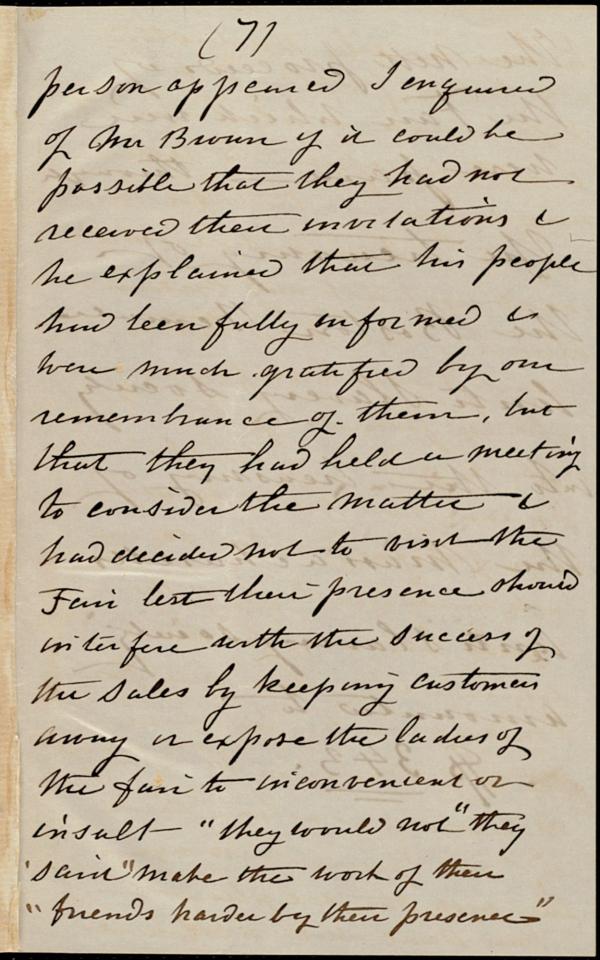 (7)
person appeared I enquired
of Mr Brown if it could be
possible that they had not
received their invitations &
he explained that his people
had been fully informed &
were much gratified by our
remembrance of them, but
that they had held a meeting
to consider the matter &
had decided not to visit the
Fair lest their presence should
interfere with the success of
the sales by keeping customers
away or expose the ladies of
the fair to inconvenient or
insult - "they would not" they
'said" make the work of their
"friends harder by their presence"